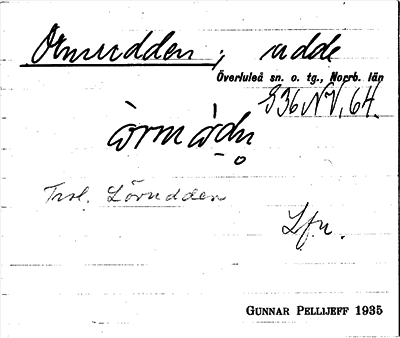 Ormudden, udde
Överluleå sn. o. tg., Norrb. län
G36NV, 64.
Trol. Lörudden
Lfn.
GUNNAR PELLIJEFF 1935